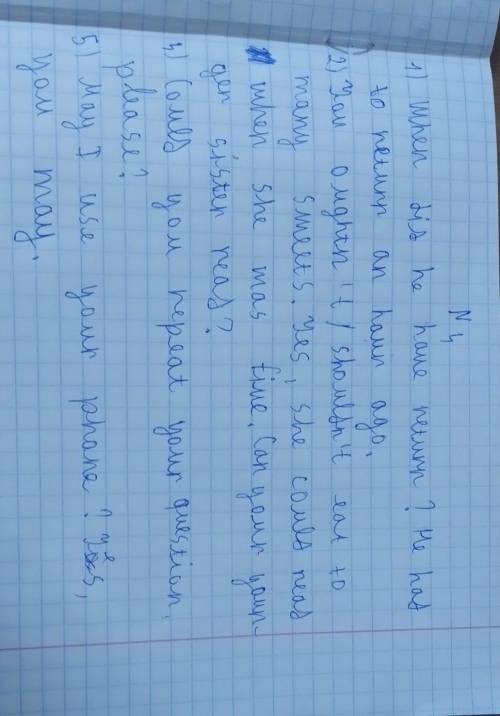 N 4
1) When did he have return? He had
to return an hour ago.
2) You oughtn't / shouldn't eat to
many sweets. Yes, she could read
when she was five. Can your youn-
ger sister read?
4) Could you repeat your question,
please?
5) May I use your phone? Yes,
you may.